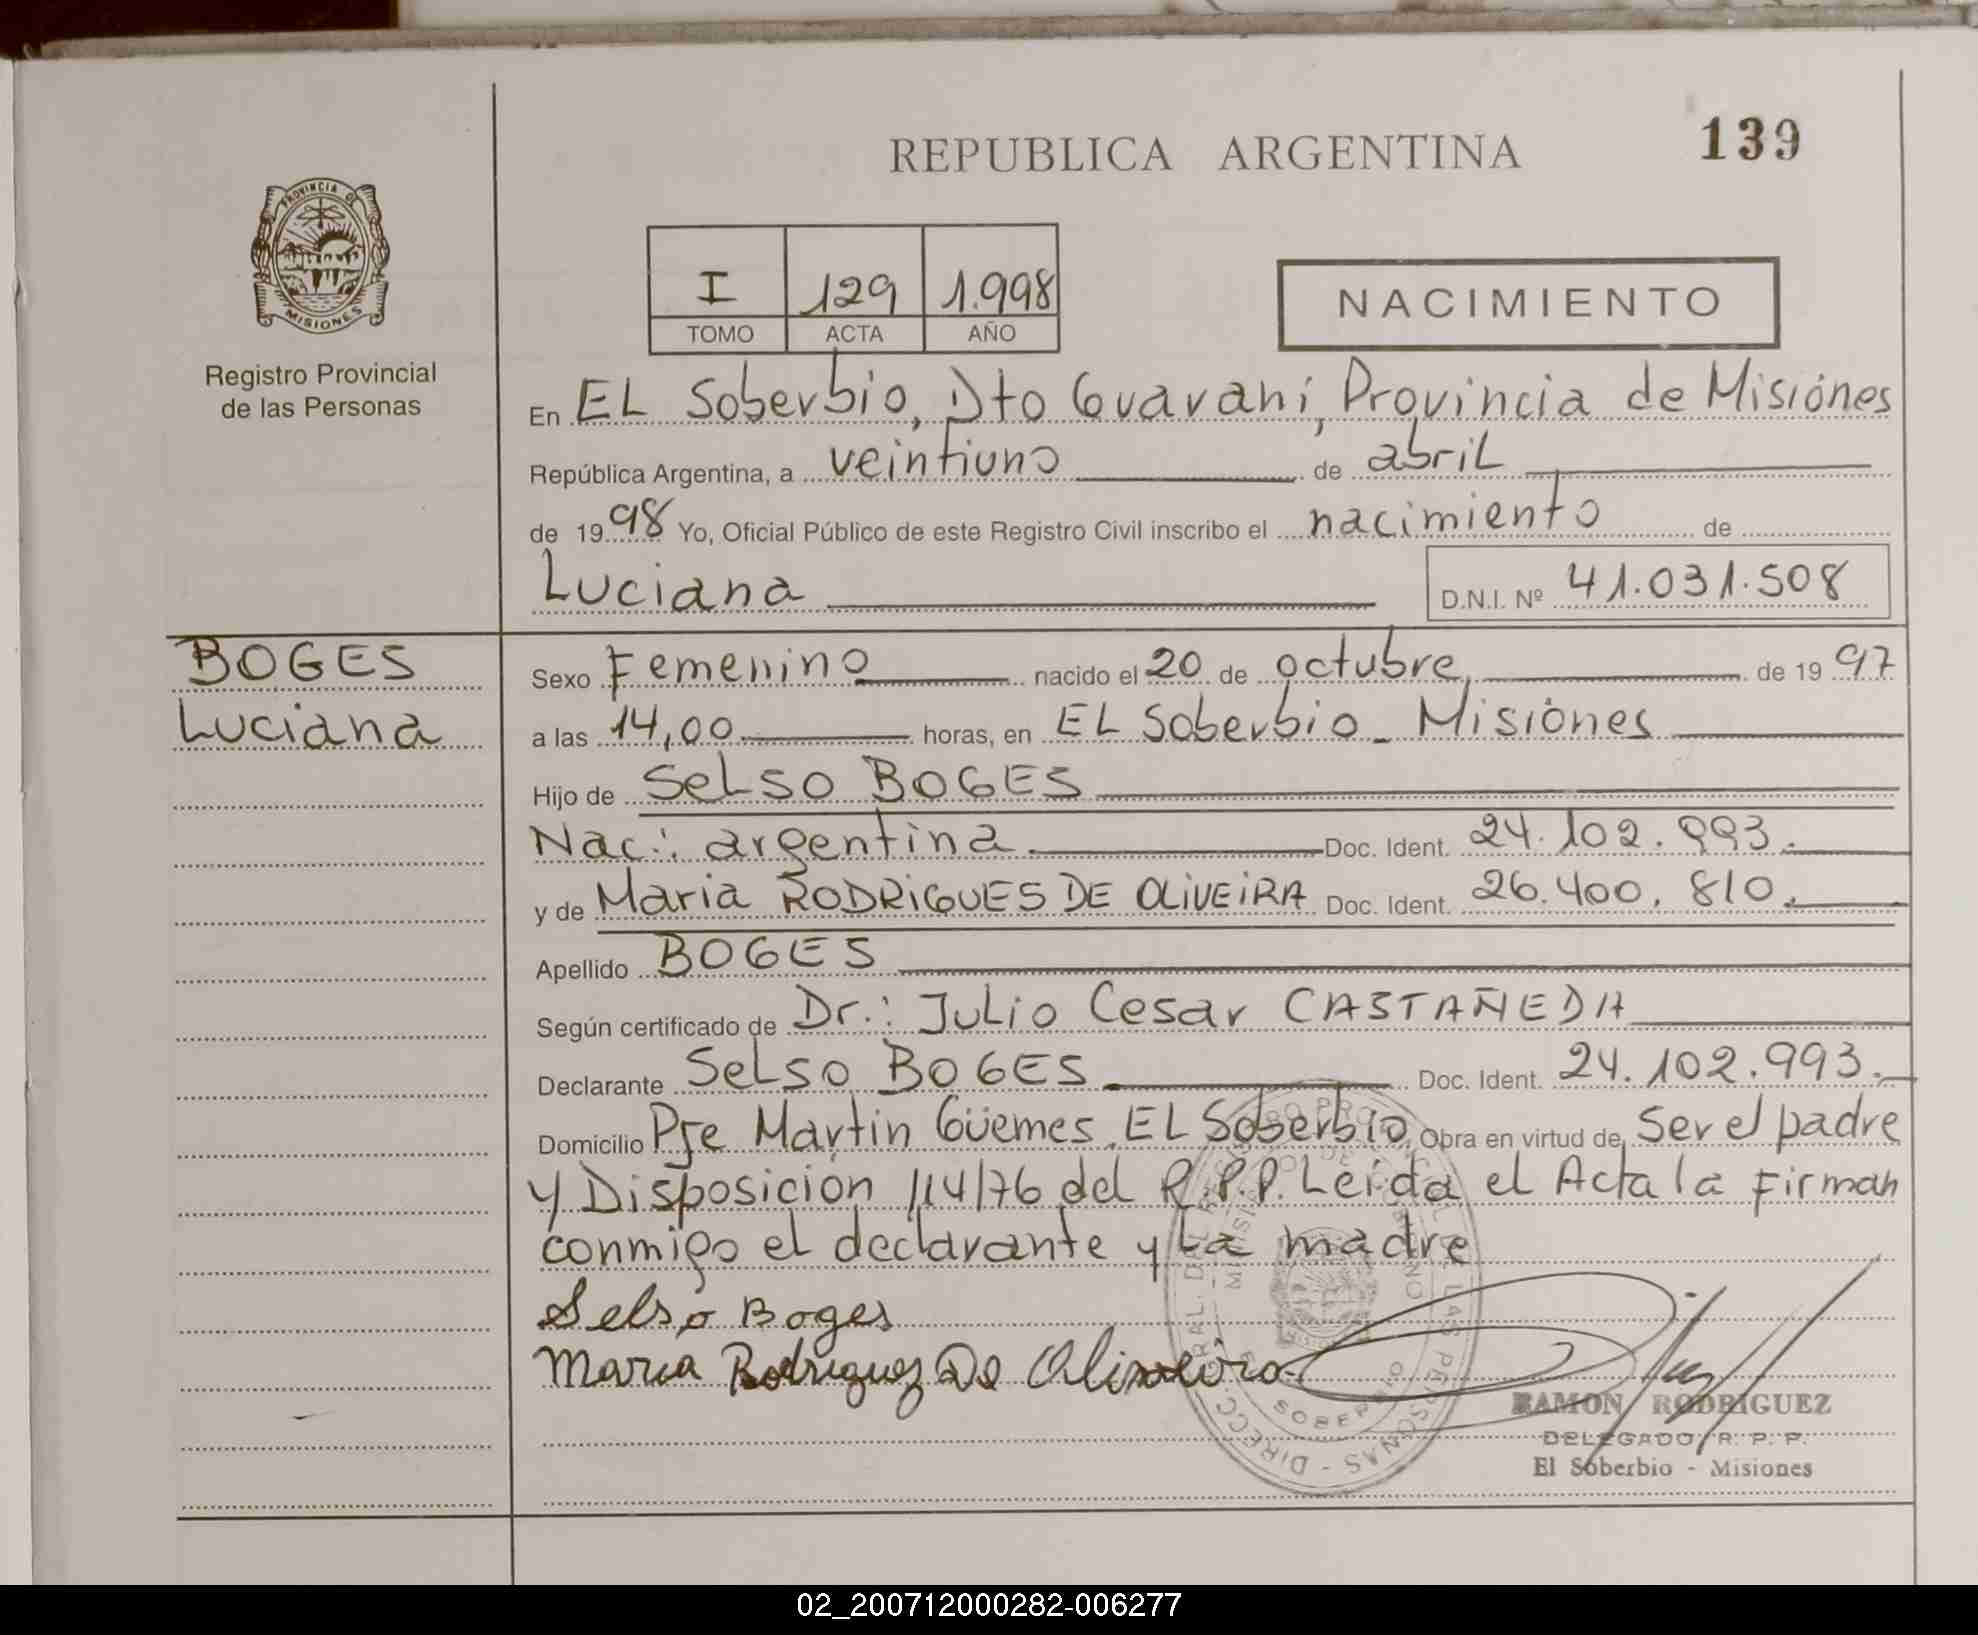 REPUBLICA ARGENTINA
139
PROVINCIA DE
MISIONES
Registro Provincial
de las Personas
I 129 1.998
TOMO ACTA AÑO
NACIMIENTO
En EL Soberbio, Dto Guaraní, Provincia de Misiónes
República Argentina, a veintiuno de abril
de 1998 Yo, Oficial Público de este Registro Civil inscribo el nacimiento de
Luciana
D.N.I. Nº 41.031.508
BOGES
Luciana
Sexo Femenino nacido el 20 de octubre, de 1997
a las 14,00 horas, en EL Soberbio - Misiónes
Hijo de SeLso BOGES
Nac.: argentina. Doc. Ident. 24.102.993.
y de Maria RODRiGUES DE OLiVEiRA Doc. Ident. 26.400.810.
Apellido BOGES
Según certificado de Dr.: JuLio Cesar CASTAÑEDA
Declarante SeLso BOGES Doc. Ident. 24.102.993.
Domicilio Pje Martin Güemes, EL Soberbio, Obra en virtud de, Ser el padre
y Disposición 114/76 del R.P.P. Leida el Acta la Firman
conmigo el declarante y La madre
Selso Boges
Maria Rodriguez De Oliveira
RAMON RODRIGUEZ
DELEGADO R. P. P.
El Soberbio - Misiones
02_200712000282-006277